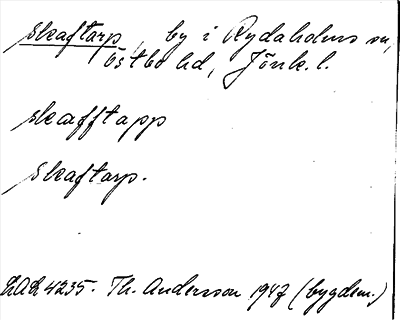 Skaftarp, by i Rydaholms sn,
Östbo hd, Jönk. l.
skæfftapp
Skaftarp.
ULA 4235. Th. Andersson 1947 (bygdem.)